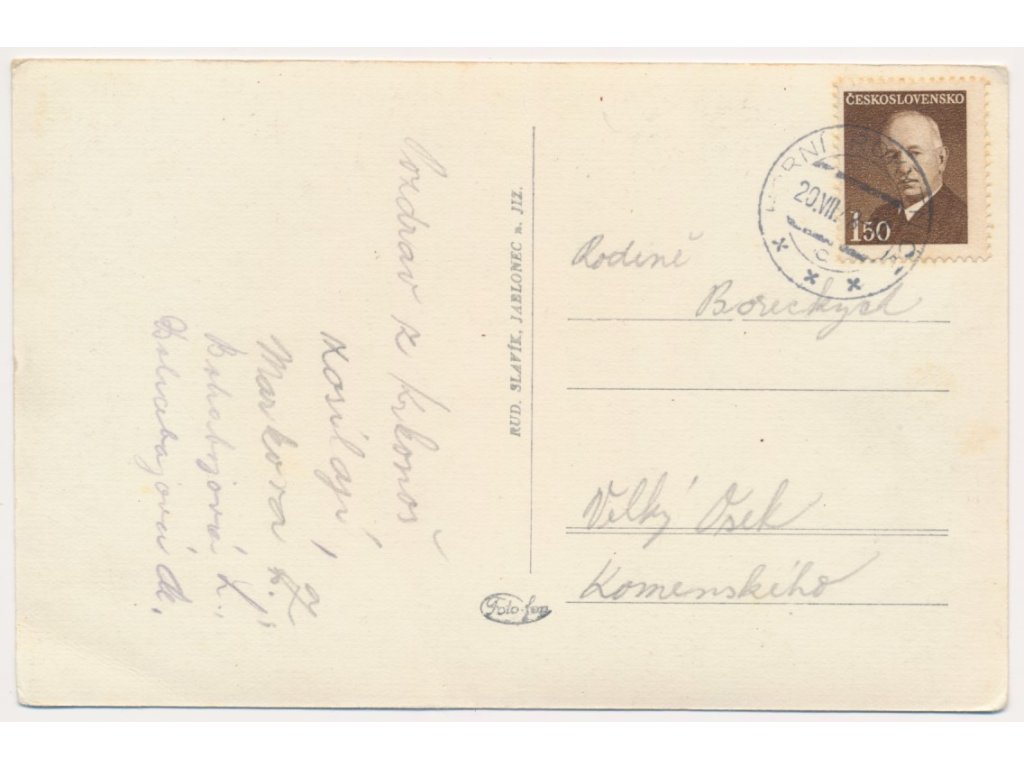 Pozdrav z Krkonoš
Kosílají
Markova
a
Bohabojová L.,
RUD. SLAVÍK, JABLONEC n. JIZ.
Foto-fon
ČESKOSLOVENSKO
1.50
HORNÍ
20.VII.
Rodině
Boreckych
Velký Osek
Komenského